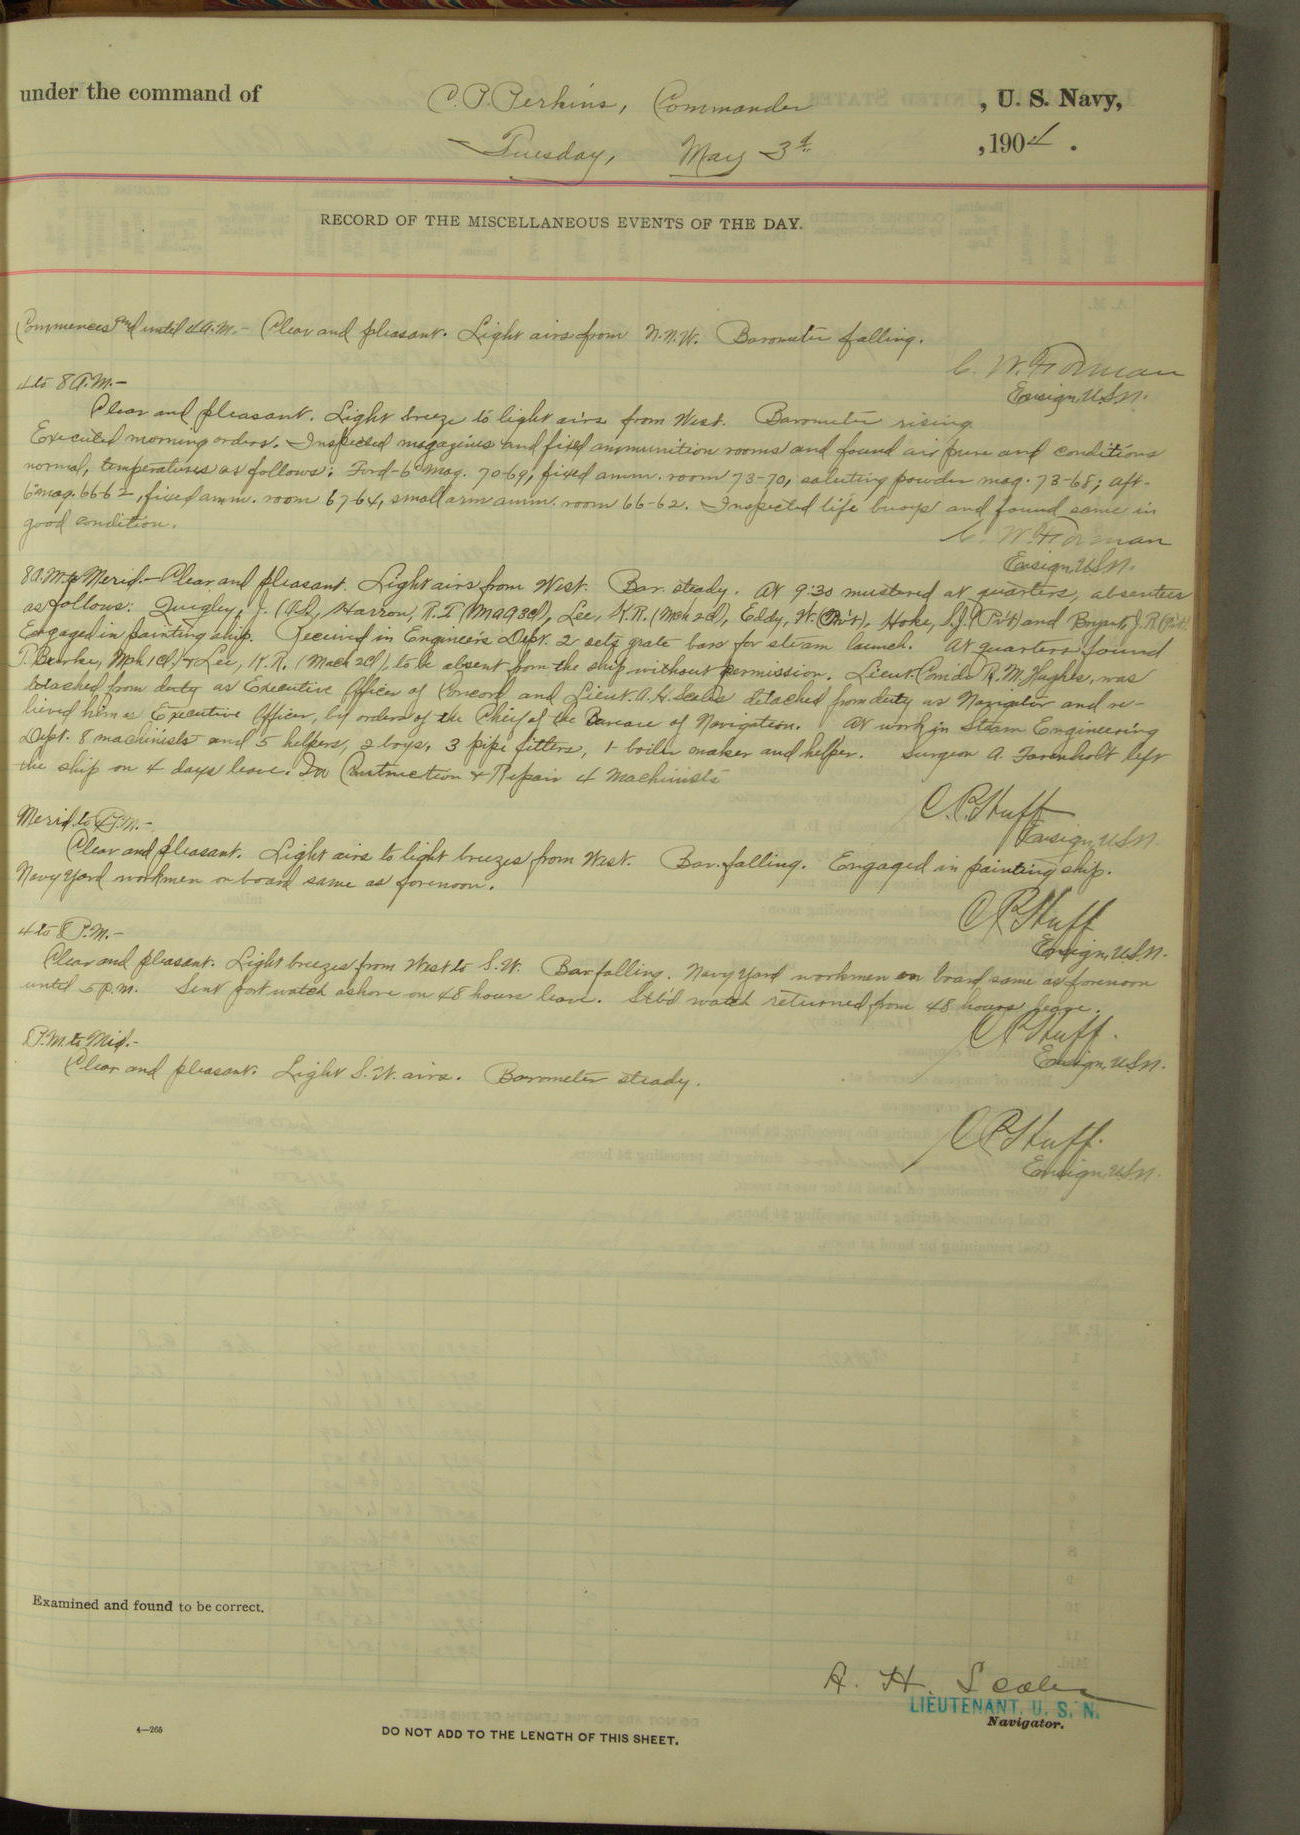 under the command of C. P. Perkins, Commander , U. S. Navy,
Tuesday, May 3d ,1904 .
RECORD OF THE MISCELLANEOUS EVENTS OF THE DAY.
Commences and until 4 A.M.- Clear and pleasant. Light airs from N.N.W. Barometer falling.
C. W. Forman
Ensign, U.S.N.
4 to 8 A.M.-
Clear and pleasant. Light breeze to light airs from West. Barometer rising.
Executed morning orders. Inspected magazines and fixed ammunition rooms and found air pure and conditions
normal, temperatures as follows: Ford-6" mag. 70-69, fixed amm. room 73-70, saluting powder mag. 73-68; aft-
6" mag. 66-62, fixed amm. room 67-64, small arm amm. room 66-62. Inspected life buoys and found same in
good condition.
C. W. Forman
Ensign, U.S.N.
8 A.M. to Merid.- Clear and pleasant. Light airs from West. Bar. steady. At 9:30 mustered at quarters, absentees
as follows: Quigley, J. Harron, R.I. Lee, K.R. (Mch 2cl), Eddy, W. (Pvt), Hoke, S.J. (Pvt) and J.R. (Pvt).
Engaged in painting ship. Received in Engineers Dept. 2 sets grate bars for steam launch. At quarters found
P. Burke, Mch 1cl. & Lee, K.R. (Mach 2cl), to be absent from the ship without permission. Lieut. Comdr R. M. Hughes, was
detached from duty as Executive Officer of Concord and Lieut. A.H. Scales detached from duty as Navigator and re-
lieved him as Executive Officer, by orders of the Chief of the Bureau of Navigation. At work in Steam Engineering
Dept. 8 machinists and 5 helpers, 2 boys, 3 pipe fitters, 1 boiler maker and helper. Surgeon A. Farenholt left
the ship on 4 days leave. In Construction & Repair 4 Machinists
C. P. Huff
Ensign, U.S.N.
Merid. to 4 P.M.-
Clear and pleasant. Light airs to light breezes from West. Bar. falling. Engaged in painting ship.
Navy Yard workmen on board same as forenoon.
C. P. Huff
Ensign, U.S.N.
4 to 8 P.M.-
Clear and pleasant. Light breezes from West to S.W. Bar falling. Navy Yard workmen on board same as forenoon
until 5 p.m. Sent port watch ashore on 48 hours leave. Stb'd watch returned from 48 hours leave.
C. P. Huff.
Ensign, U.S.N.
8 P.M. to Mid.-
Clear and pleasant. Light S.W. airs. Barometer steady.
C. P. Huff.
Ensign, U.S.N.
Examined and found to be correct.
A. H. Scales
LIEUTENANT, U. S. N.
Navigator.
4—265
DO NOT ADD TO THE LENGTH OF THIS SHEET.